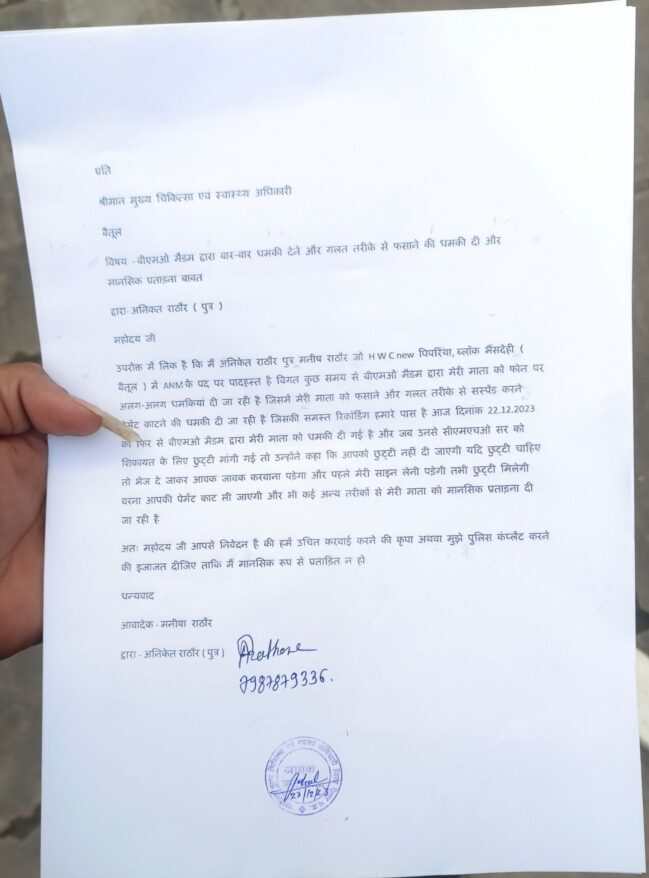 प्रति
श्रीमान मुख्य चिकित्सा एवं स्वास्थ्य अधिकारी
बैतूल
विषय - बीएमओ मैडम द्वारा बार-बार धमकी देने और गलत तरीके से फसाने की धमकी दी और
मानसिक प्रताडना बाबत
द्वारा- अनिकेत राठौर ( पुत्र )
महोदय जी
उपरोक्त में लिक है कि मैं अनिकेत राठौर पुत्र मनीष राठौर जो H W C new पिपरिया, ब्लॉक भैंसदेही (
बैतूल ) में ANM के पद पर पादहस्त है विगत कुछ समय से बीएमओ मैडम द्वारा मेरी माता को फोन पर
अलग-अलग धमकियां दी जा रही है जिसमें मेरी माता को फसाने और गलत तरीके से सस्पेंड करने
पेमेंट काटने की धमकी दी जा रही है जिसकी समस्त रिकॉर्डिंग हमारे पास है आज दिनांक 22.12.2023
को फिर से बीएमओ मैडम द्वारा मेरी माता को धमकी दी गई है और जब उनसे सीएमएचओ सर को
शिकायत के लिए छुट्टी मांगी गई तो उन्होंने कहा कि आपको छुट्टी नहीं दी जाएगी यदि छुट्टी चाहिए
तो भेज दे जाकर आवक जावक करवाना पड़ेगा और पहले मेरी साइन लेनी पड़ेगी तभी छुट्टी मिलेगी
वरना आपकी पेमेंट काट ली जाएगी और भी कई अन्य तरीकों से मेरी माता को मानसिक प्रताड़ना दी
जा रही है
अतः महोदय जी आपसे निवेदन है की हमें उचित करवाई करने की कृपा अथवा मुझे पुलिस कंप्लेंट करने
की इजाजत दीजिए ताकि मैं मानसिक रूप से प्रताडित न हो
धन्यवाद
आवादेक - मनीषा राठौर
द्वारा - अनिकेत राठौर ( पुत्र ) ARathore
7987879336.
आवक
22/12/23